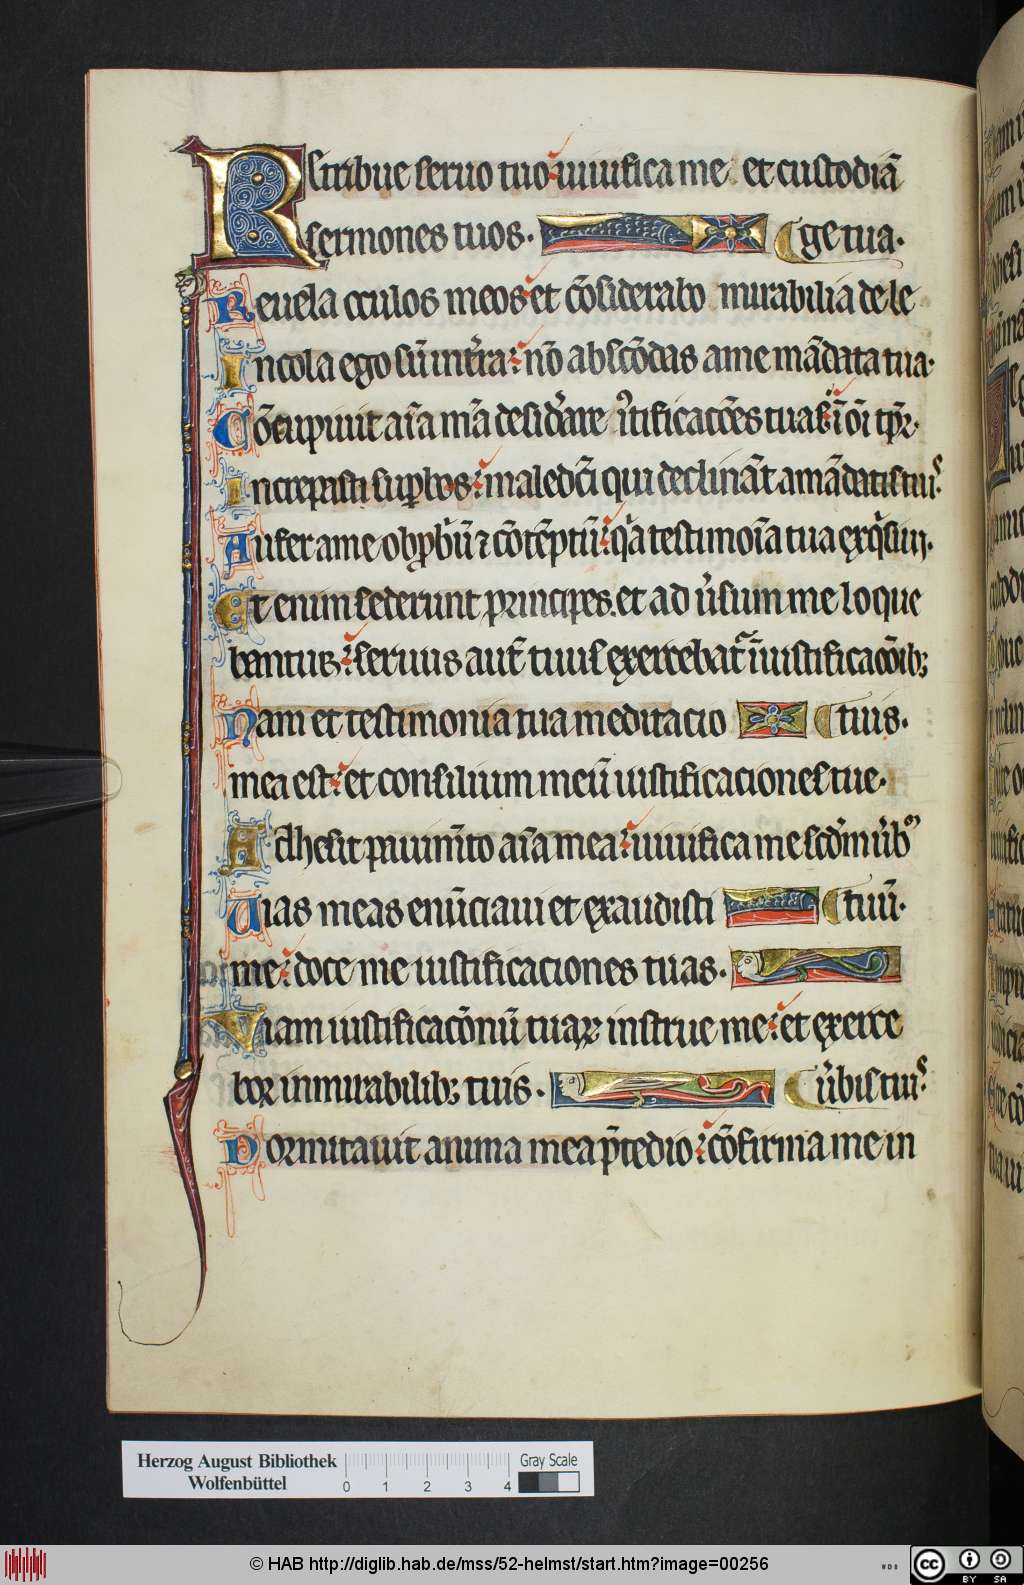 Retribue seruo tuo uiuifica me et custodiā
sermones tuos. ge tua.
Reuela oculos meos et cōsiderabo mirabilia de le
Incola ego sū in t̄ra nō abscōdas a me mādata tua.
Cōcupiuit aīa mēa desid̄are iustificacōes tuas ī oī tp̄r.
Increpasti sup̄bos maledc̄i qui declināt a mādatis tuis
Aufer a me obp̄briū ⁊ cōtēptū q̄a testimoīa tua exq̄siui.
Et enim sederunt principes. et ad ūsum me loque
bantur seruus aut̄ tuus exercebat̄ ī iustificacōib;
Nam et testimonia tua meditacio tuis.
mea est et consilium meū iustificaciones tue.
Adhesit pauimēto aīa mea uiuifica me scd̄m ūbū
Uias meas enūciaui et exaudisti tuū.
me doce me iustificaciones tuas.
Viam iustificacōnū tuaꝝ instrue me et exerce
bor in mirabilib; tuis. ūbis tuis
Dormitauit anima mea p̄ tedio cōfirma me in
Herzog August Bibliothek
Wolfenbüttel
0 1 2 3 4
Gray Scale
© HAB http://diglib.hab.de/mss/52-helmst/start.htm?image=00256
WDB
cc BY SA